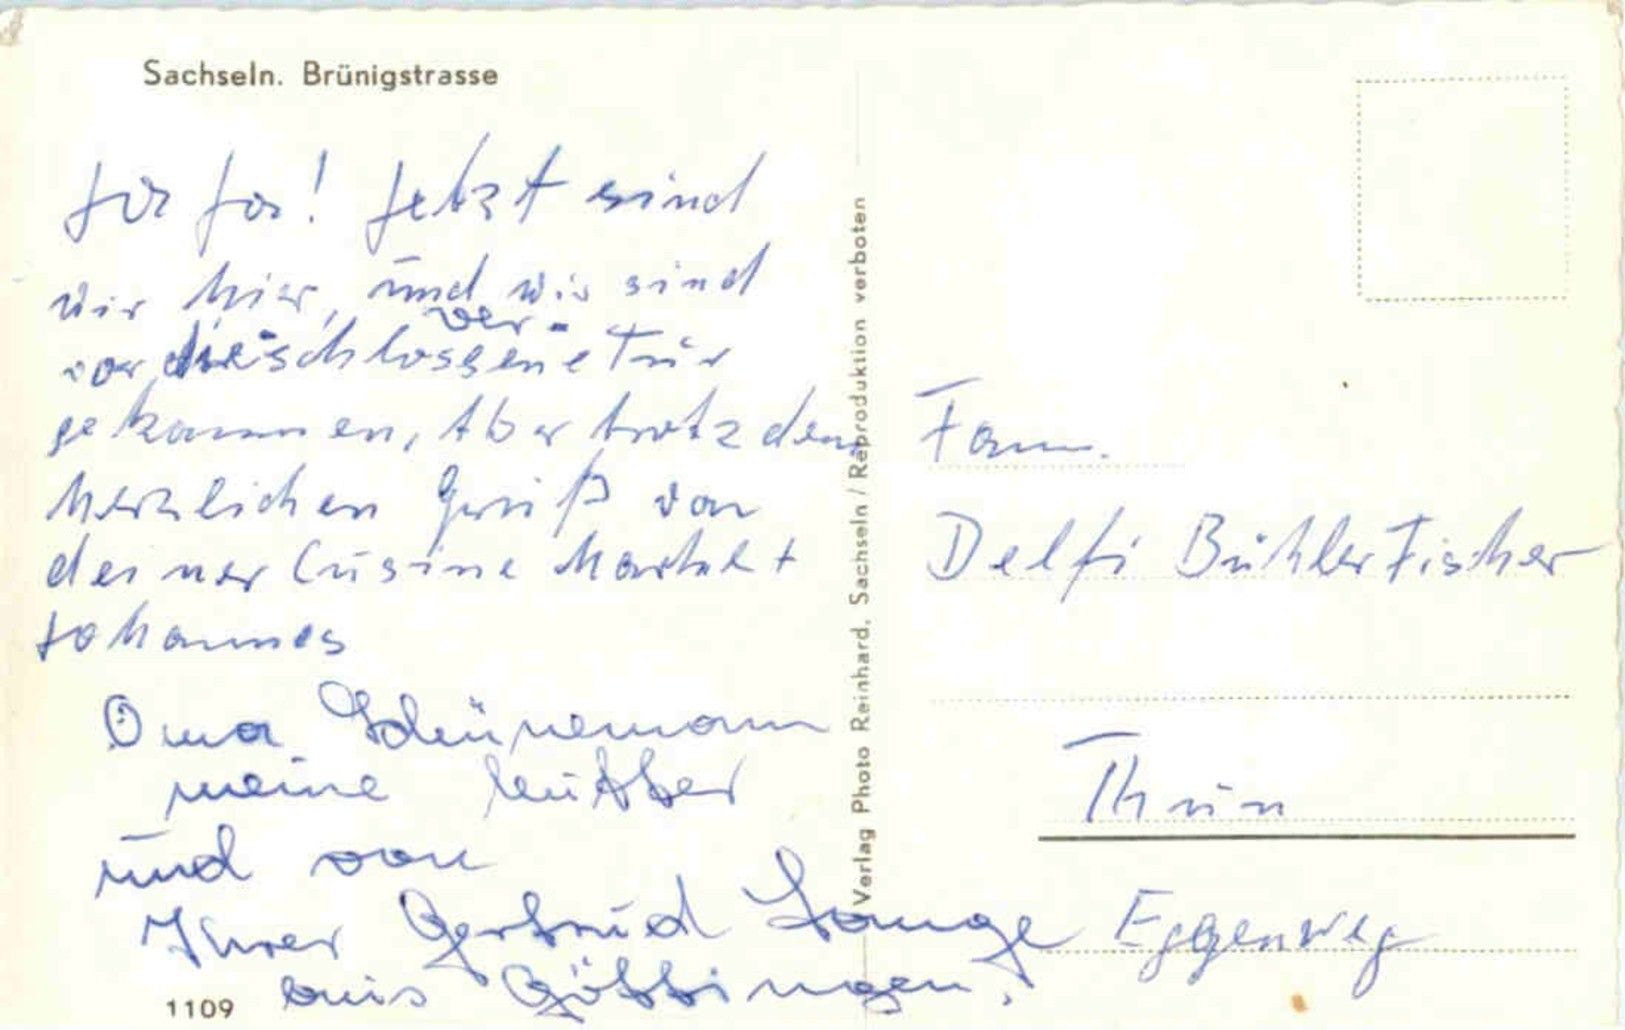 Sachseln. Brünigstrasse
Ja Ja! Jetzt sind
wir hier, und wir sind
ver-
vor die schlossene Tür
gekommen, Aber trotzdem
herzlichen Gruß von
deiner Cusine +
Johannes
Oma Schünemann
meine Mutter
und von
Ihrer Gertrud Lange
aus Göttingen.
1109
Verlag Photo Reinhard, Sachseln / Reproduktion verboten
Fam.
Delfi Bühler Fischer
Thun
Eggenweg